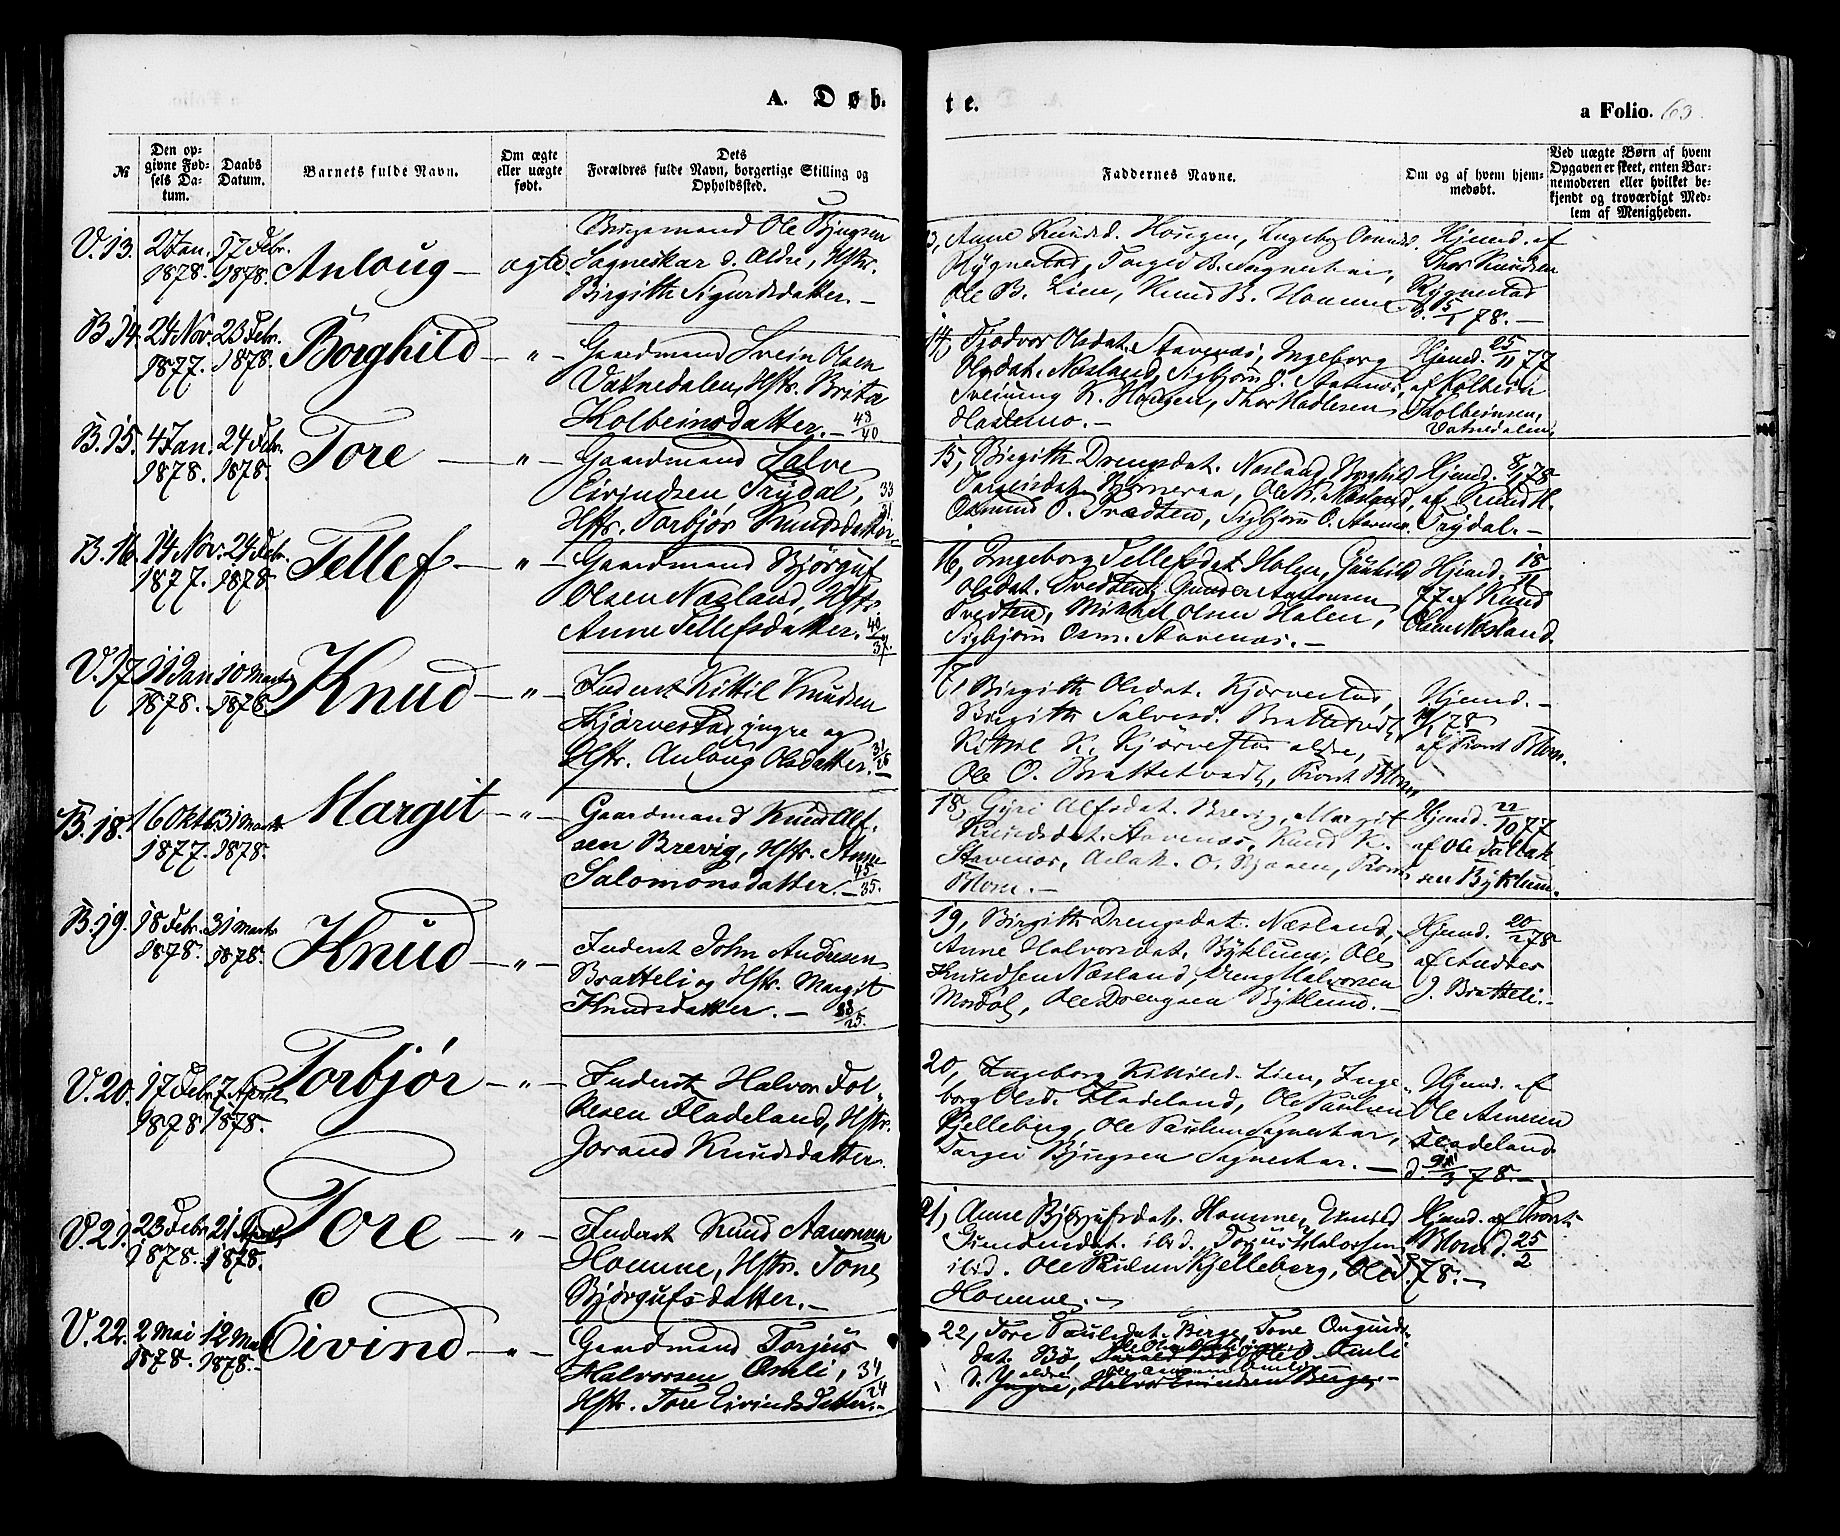 A. Døb-
te.
a Folio. 63.
№
Den op-
givne Fød-
sels Da-
tum.
Daabs
Datum.
Barnets fulde Navn.
Om ægte
eller uægte
født.
Dets
Forældres fulde Navn, borgertige Stilling og
Opholdssted.
Faddernes Navne.
Om og af hvem hjem-
medøbt.
Ved uægte Børn af hvem
Opgaven er skeet, enten Bar-
nemoderen eller hvilket be-
kjendt og troværdigt Med-
lem af Menigheden.
V. 13. 2 Jan. 1878. 17 Febr. 1878. Anloug — ægte
Brugsmand Ole Bjugsen
Sagneskar d. Ældre, Hstr.
Birgith Sigurdsdatter. —
13, Anne Knudsd. Hougen, Ingebg Osmds.
Rygnestad, Torged B. Sagneskar,
Ole B. Lien, Knud B. Homme
Hjemd. af
Thor Knudsen
Rygnestad
78. —
B. 14. 24 Nov. 1877. 23 Febr. 1878. Borghild — " —
Gaardmand Svein Olsen
Vatnedalen, Hstr. Brita
Kolbeinsdatter. — 43/40
14, Tjodvor Olsdat. Stavenæs, Ingeborg
Olsdat. Næsland, Sigbjørn O. Stavenæs,
Sveinung K. Hougen, Thor Hadlesen
Hostemo. —
Hjemd. 25/11 77
af Kolbein
Kolbeinsen,
Vatnedalen,
B. 15. 4 Jan. 1878. 24 Febr. 1878. Tore — " —
Gaardmand Salve
Eivindsen Trydal, 33/31
Hstr. Torbjør Knudsdatter.
15, Birgith Drengsdat. Næsland, Borghild
Bjørneraa, Ole K. Næsland,
Osmund O. Trædten, Sigbjørn O. Stavenæs.
Hjemd. 8/1 78
af Knud H.
Trydal. —
B. 16. 14 Nov. 1877. 24 Febr. 1878. Tellef — " —
Gaardmand Bjørguf
Olsen Næsland, Hstr.
Anne Tellefsdatter. 40/37.
16, Ingeborg Tellefsdat. Holen, Gunhild
Olsdat. Tvedten, Gunder Aanonsen
Tvedten, Mikkel Olsen Holen,
Sigbjørn Osm. Stavenæs. —
Hjemd. 18/11
77 af Knud
Olsen Næsland.
V. 17 11 Jan 1878. 10 Marts 1878. Knud — " —
Inderst Kittil Knudsen
Kjørvestad yngre og
Hstr. Anloug Olsdatter. 31/26
17, Birgith Olsdat. Kjørvestad,
Birgith Salvesd. Brattetvedt,
Kittil K. Kjørvestad ældre,
Ole O. Brattetvedt, Provst Blom
Hjemd. —
78
af Provst Blom.
B. 18. 16 Okt. 1877. 31 Marts 1878. Margit — " —
Gaardmand Knud Alf-
sen Brevig, Hstr. Anne
Salomonsdatter. — 45/35.
18, Gyri Alfsdat. Brevig, Margit
Knudsdat. Stavenæs, Knud K.
Stavenæs, Aslak O. Bjaaen, Provst
Blom. —
Hjemd. 22/10 77
af Ole Tallak
sen Byklum.
B. 19. 18 Febr. 1878. 31 Marts 1878. Knud — " —
Inderst John Andersen
Bratteli og Hstr. Margit
Knudsdatter. — 28/25.
19, Birgith Drengsdat. Næsland,
Anne Halvorsdat. Byklum, Ole
Knudsen Næsland, Dreng Halvorsen
Mosdøl, Ole Drengsen Byklum. —
Hjemd. 20/2 78
af Anders
J. Bratteli. —
V. 20. 17 Febr. 1878 7 April 1878. Torbjør — " —
Inderst Halvor Fol-
kesen Fladeland, Hstr.
Jorand Knudsdatter.
20, Ingeborg Kittilsd. Lien, Inge-
borg Olsd. Fladeland, Ole Paulsen
Kjelleberg, Ole Paulsen Sagneskar,
Targei Bjugsen Sagneskar. —
Hjemd. af
Ole Arnesen
Fladeland
d. 78. —
V. 21. 23 Febr. 1878. 21 April 1878. Tore — " —
Inderst Knud Aanonsen
Homme, Hstr. Tone
Bjørgufsdatter. —
21, Anne Bjørgufsdat. Homme, Gunild
Gundersdat. ibid. Torjus Halvorsen
ibid. Ole Paulsen Kjelleberg, Ole D.
Homme. —
Hjemd. af Provst
Blom d. 25/2
78. —
V. 22. 2 Mai 1878. 12 Mai 1878. — Eivind — " —
Gaardmand Torjus
Halvorsen Omli, 34/24
Hstr. Tore Eivindsdatter. —
22, Tore Paulsdat. Berge, Tone Ongunds-
dat. Bø, Ole O. Omli
d. Yngre, Halvor Eivindsen Berge. —